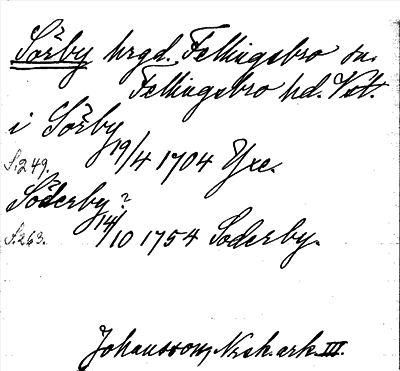 Sörby hrgd. Fellingsbro sn.
Fellingsbro hd. Vstm.
i Sörby
19/4 1704 Yxe.
S. 249.
Söderby?
14/10 1754 Soderby.
S. 263.
Johansson, Noraskog. ark. III.